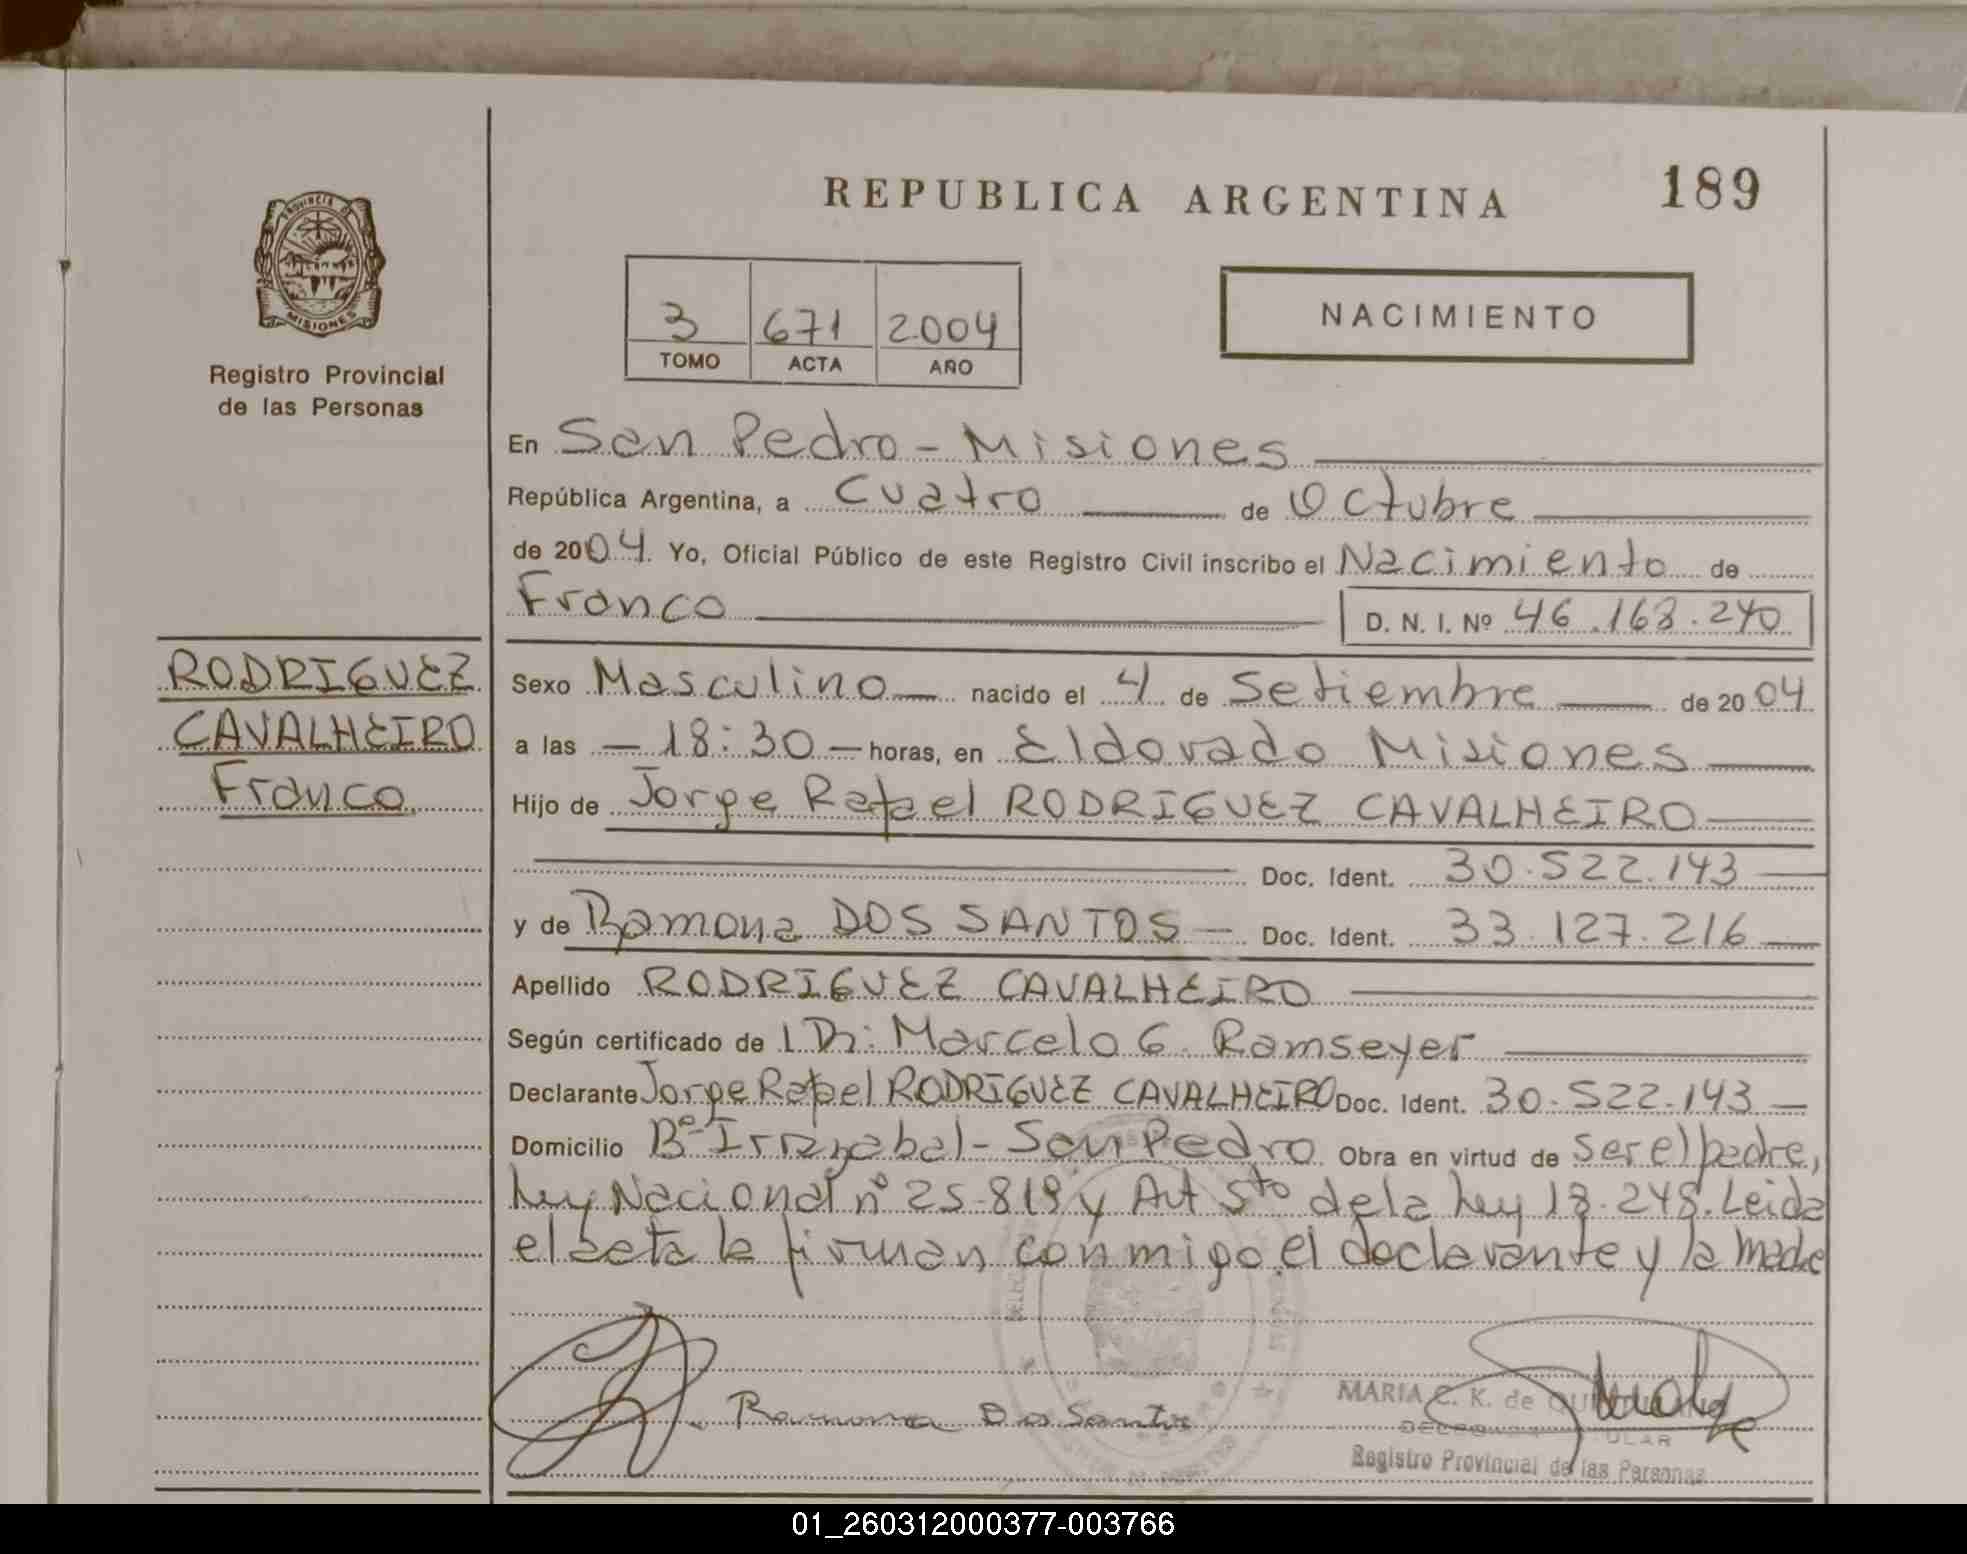 REPUBLICA ARGENTINA
189
PROVINCIA DE
MISIONES
Registro Provincial
de las Personas
3 671 2004
TOMO ACTA AÑO
NACIMIENTO
En San Pedro - Misiones
República Argentina, a Cuatro de Octubre
de 2004. Yo, Oficial Público de este Registro Civil inscribo el Nacimiento de
Franco D. N. I. Nº 46.168.240
RODRIGUEZ
CAVALHEIRO
Franco
Sexo Masculino nacido el 4 de Setiembre de 2004
a las - 18:30 - horas, en Eldorado Misiones
Hijo de Jorge Rafael RODRIGUEZ CAVALHEIRO
Doc. Ident. 30.522.143
y de Ramona DOS SANTOS - Doc. Ident. 33.127.216
Apellido RODRIGUEZ CAVALHEIRO
Según certificado de l Dr: Marcelo G. Ramseyer
Declarante Jorge Rafael RODRIGUEZ CAVALHEIRO Doc. Ident. 30.522.143
Domicilio Bº Irrazabal - San Pedro Obra en virtud de ser el padre,
Ley Nacional nº 25.819 y Art 5to de la Ley 18.248. Leida
el acta la firman conmigo el declarante y la madre
Ramona Dos Santos
MARIA C. K. de
Registro Provincial de las Personas
01_260312000377-003766